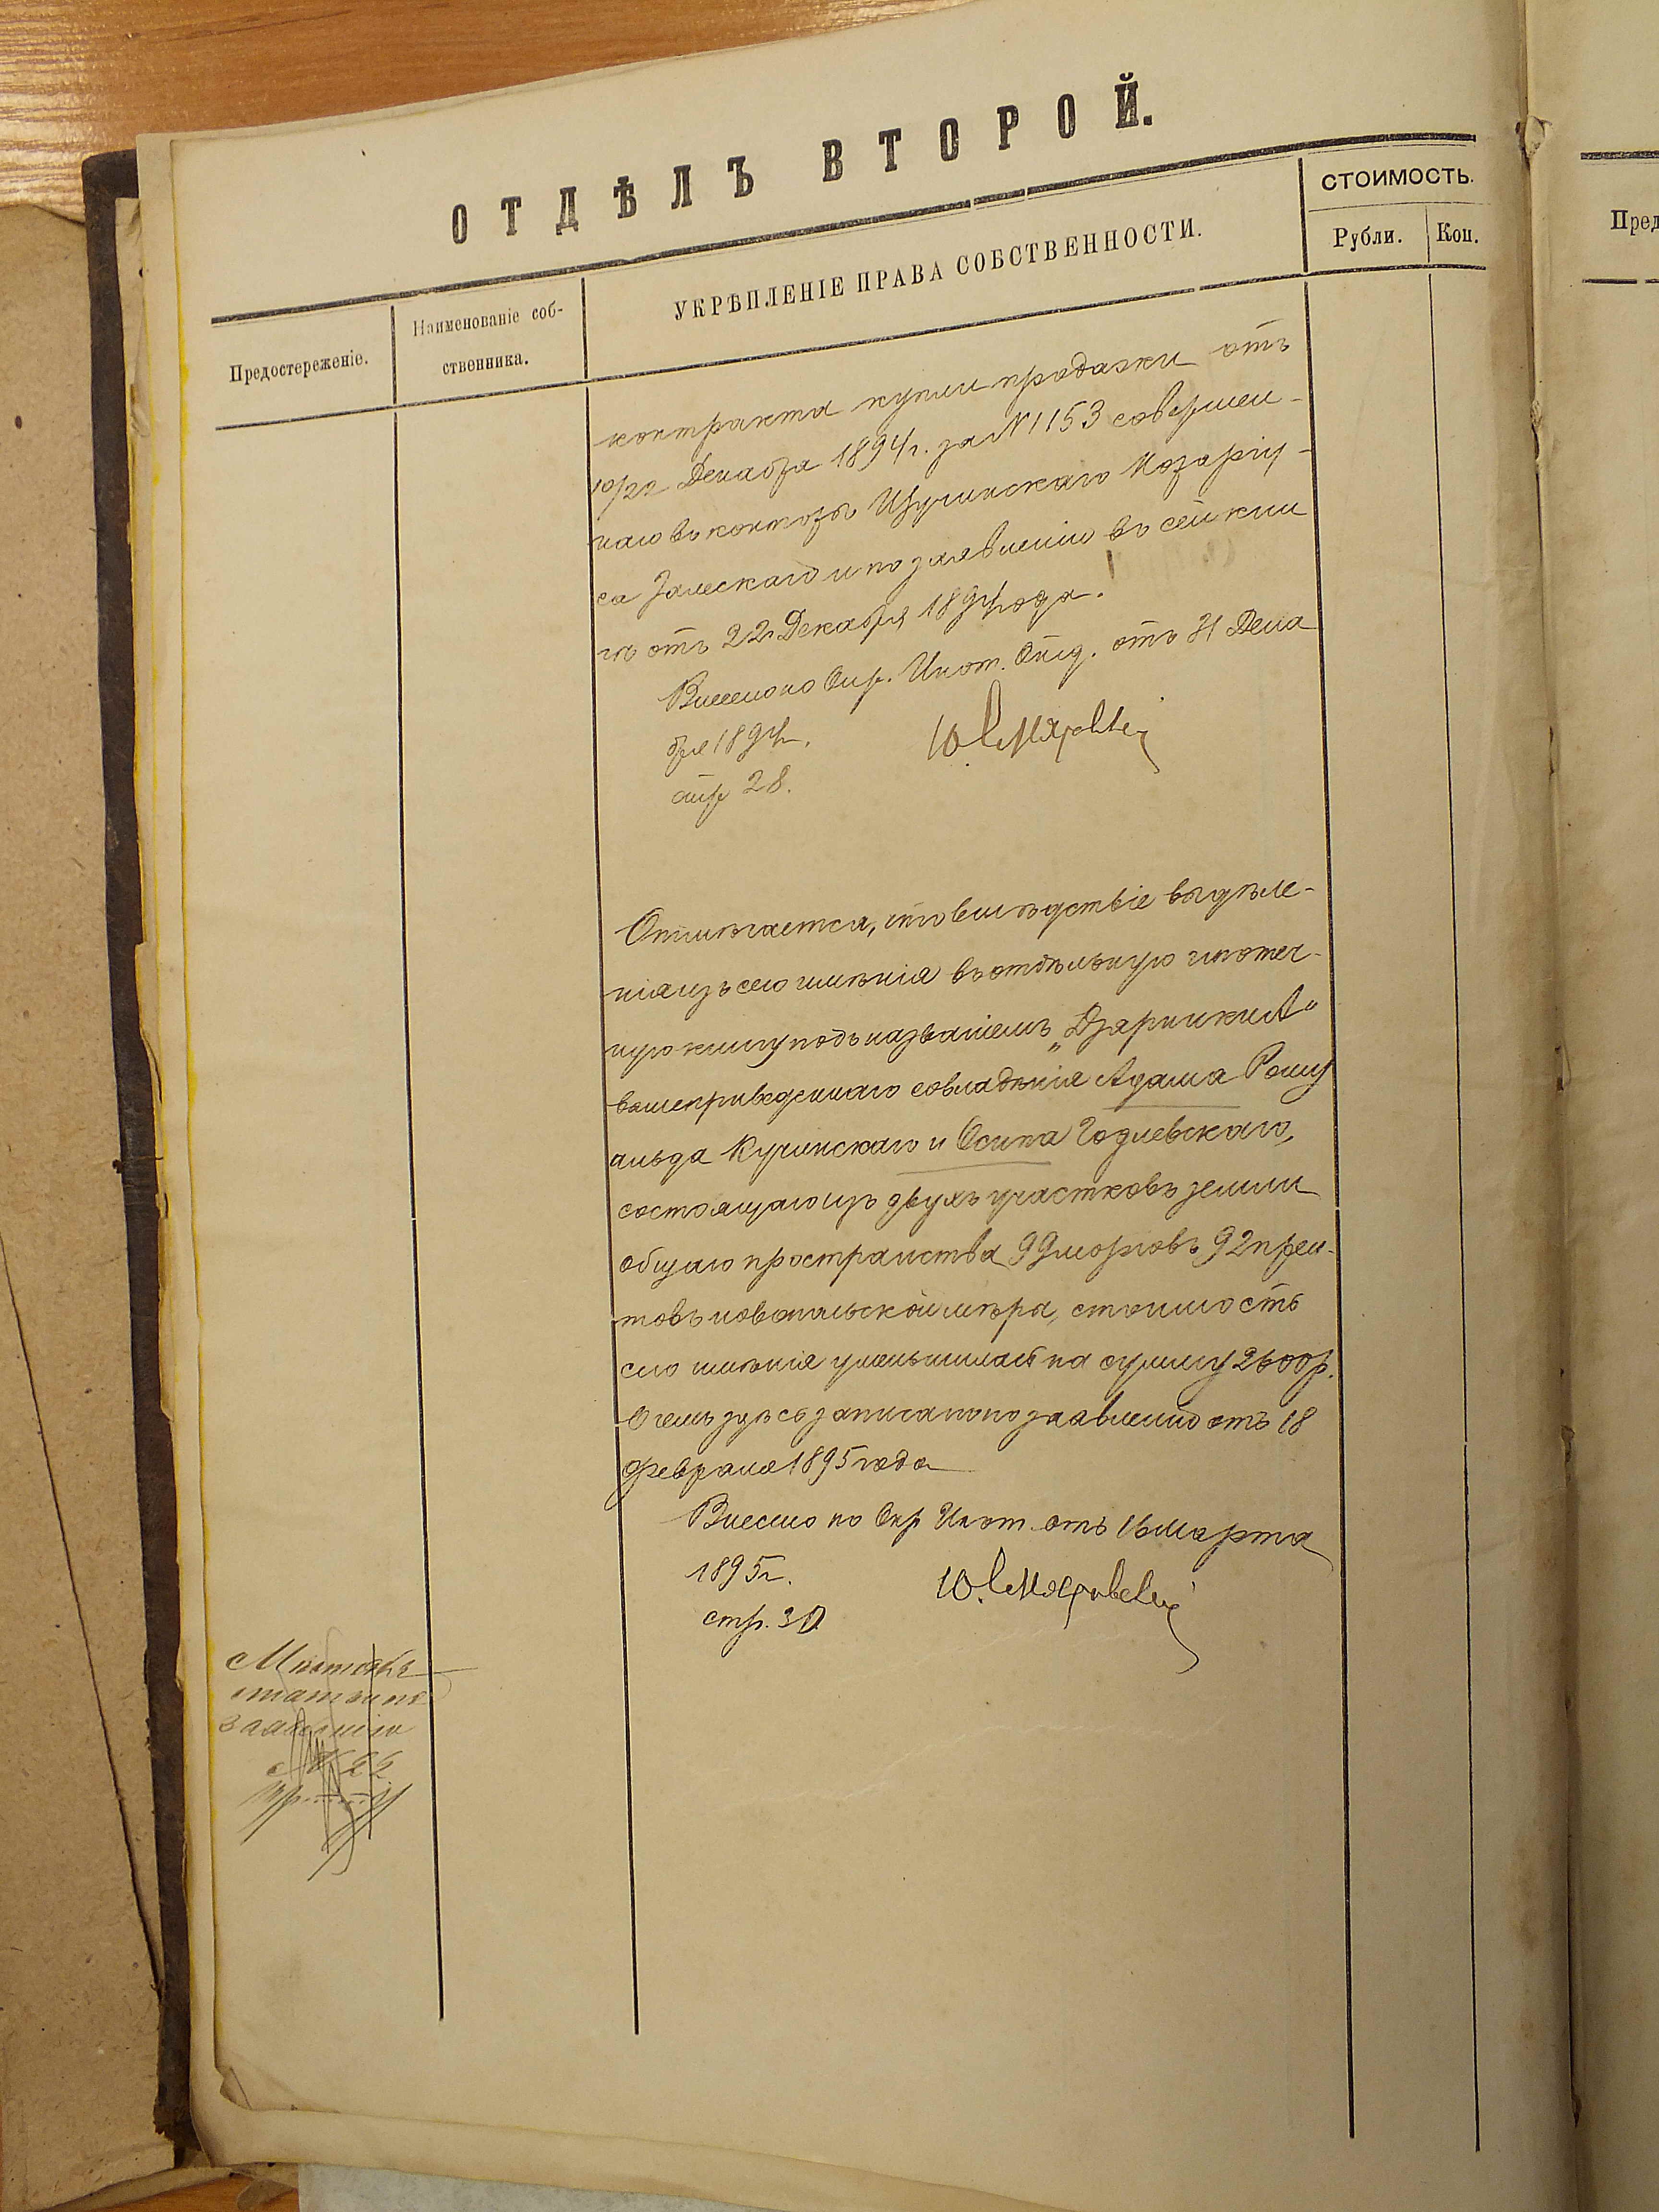 ОТДѢЛЪ ВТОРОЙ.
Предостереженіе.
Наименованіе соб-
ственника.
УКРѢПЛЕНІЕ ПРАВА СОБСТВЕННОСТИ.
СТОИМОСТЬ.
Рубли.
Коп.
Пред
контракта купли продажи отъ
10/22 Декабря 1894 г. за № 1153 совершен-
наго въ конторѣ Щучинскаго Нотаріу-
са Залескаго и по заявленію въ сей кни
гѣ отъ 22 Декабря 1894 года.
Внесено по Опр. Ипот. Отд. отъ 31 Дека
бря 1894 г.
стр 28.
Отмѣчается, что вслѣдствіе выдѣле-
нія изъ сего имѣнія въ отдѣльную ипотеч-
ную книгу подъ названіемъ „Дзарники А"
вышеприведеннаго совладѣнія Адама Рому
альда Кучинскаго и Осипа Годлевскаго,
состоящаго изъ двухъ участковъ земли
общаго пространства 99 морговъ 92 прен-
товъ новопольской мѣры, стоимость
сего имѣнія уменьшилась на сумму 2600 р.
О чемъ здѣсь записано по заявленію отъ 18
Февраля 1895 года
Внесено по Опр Ипот. отъ 16 Марта
1895 г.
стр. 30
заявленія
№ 22